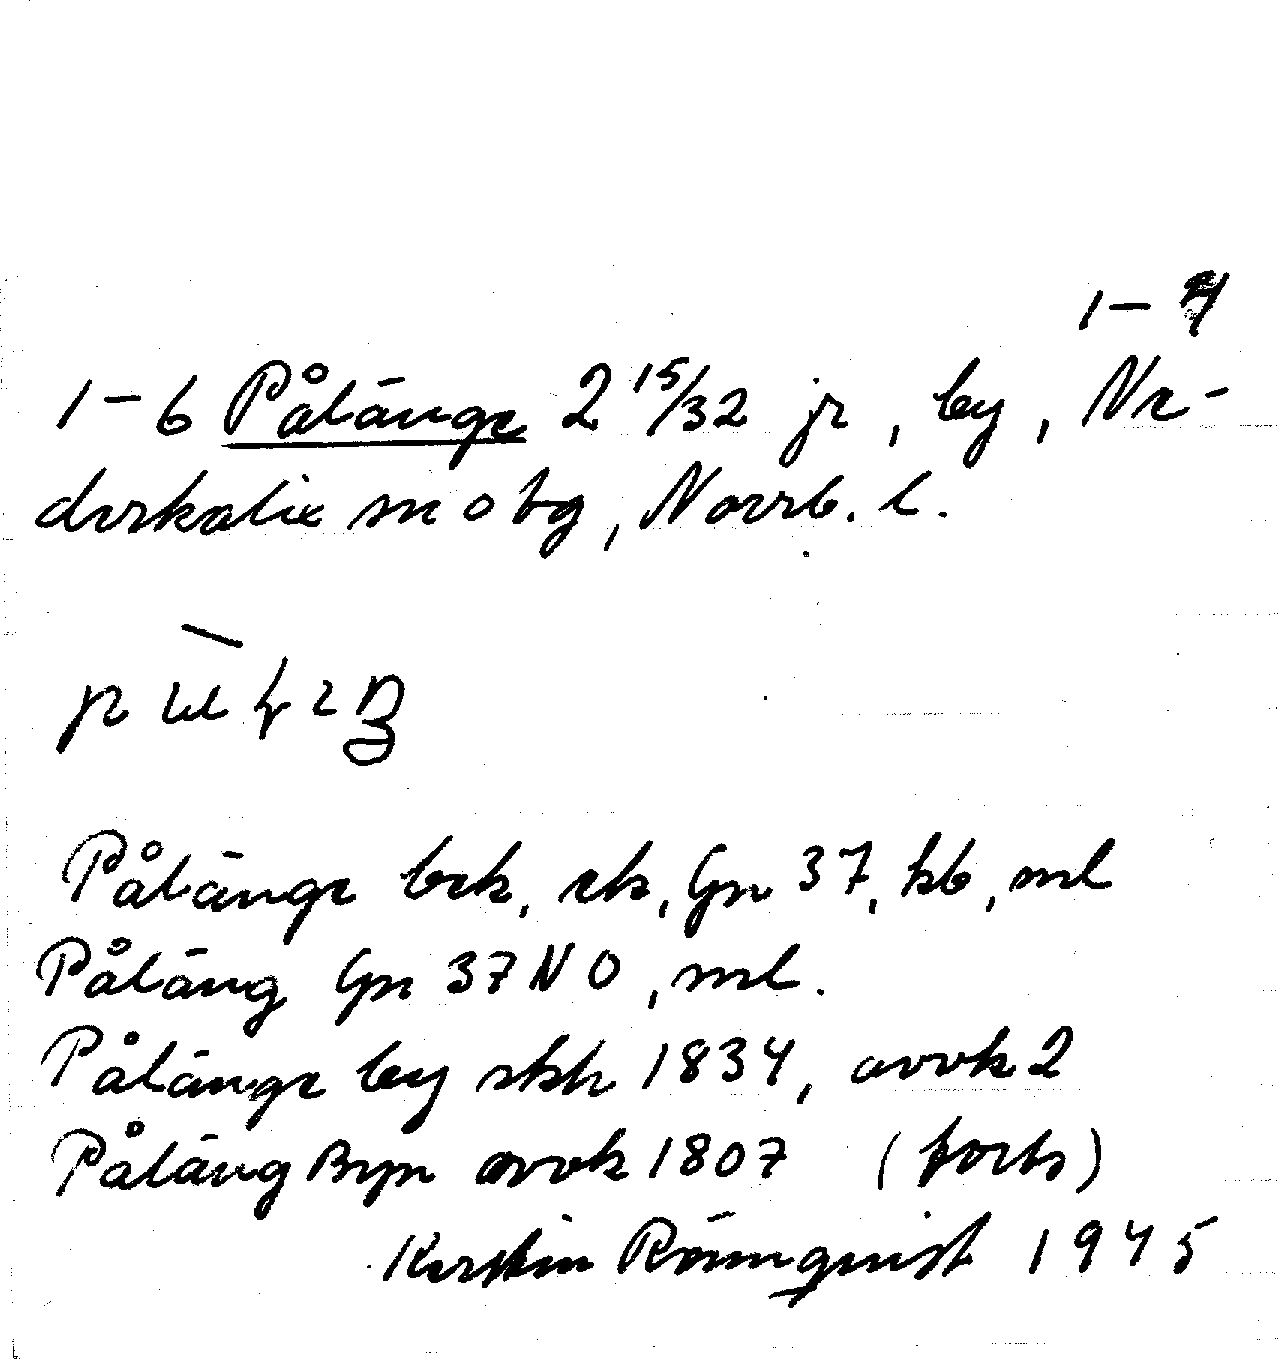 1-4
1-6 Pålänge 2 15/32 jr, by, Ne-
derkalix sn o tg, Norrb. l.
Pålänge bek, ek, Gn 37, kb, ml
Påläng Gn 37 NO, ml.
Pålänge by skh 1834, avvk 2
Påläng Byn avvk 1807 (forts)
Kerstin Rönnquist 1945